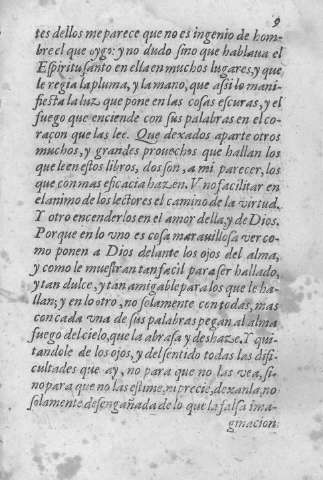 9
tes dellos me parece que no es ingenio de hom-
bre el que oygo: y no dudo sino que hablaua el
Espiritu santo en ella en muchos lugares, y que
le regia la pluma, y la mano, que assi lo mani-
fiesta la luz que pone en las cosas escuras, y el
fuego que enciende con sus palabras en el co-
raçon que las lee. Que dexados aparte otros
muchos, y grandes prouechos que hallan los
que leen estos libros, dos son, a mi parecer, los
que con mas eficacia hazen. Vno facilitar en
el animo de los lectores el camino de la virtud.
Y otro encenderlos en el amor della, y de Dios.
Porque en lo vno es cosa marauillosa ver co-
mo ponen a Dios delante los ojos del alma,
y como le muestran tan facil para ser hallado,
y tan dulce, y tan amigable para los que le ha-
llan; y en lo otro, no solamente con todas, mas
con cada vna de sus palabras pegan al alma
fuego del cielo, que la abrasa y deshaze. Y qui-
tandole de los ojos, y del sentido todas las difi-
cultades que ay, no para que no las vea, si-
no para que no las estime, ni precie, dexanla, no
solamente desengañada de lo que la falsa ima-
ginacion